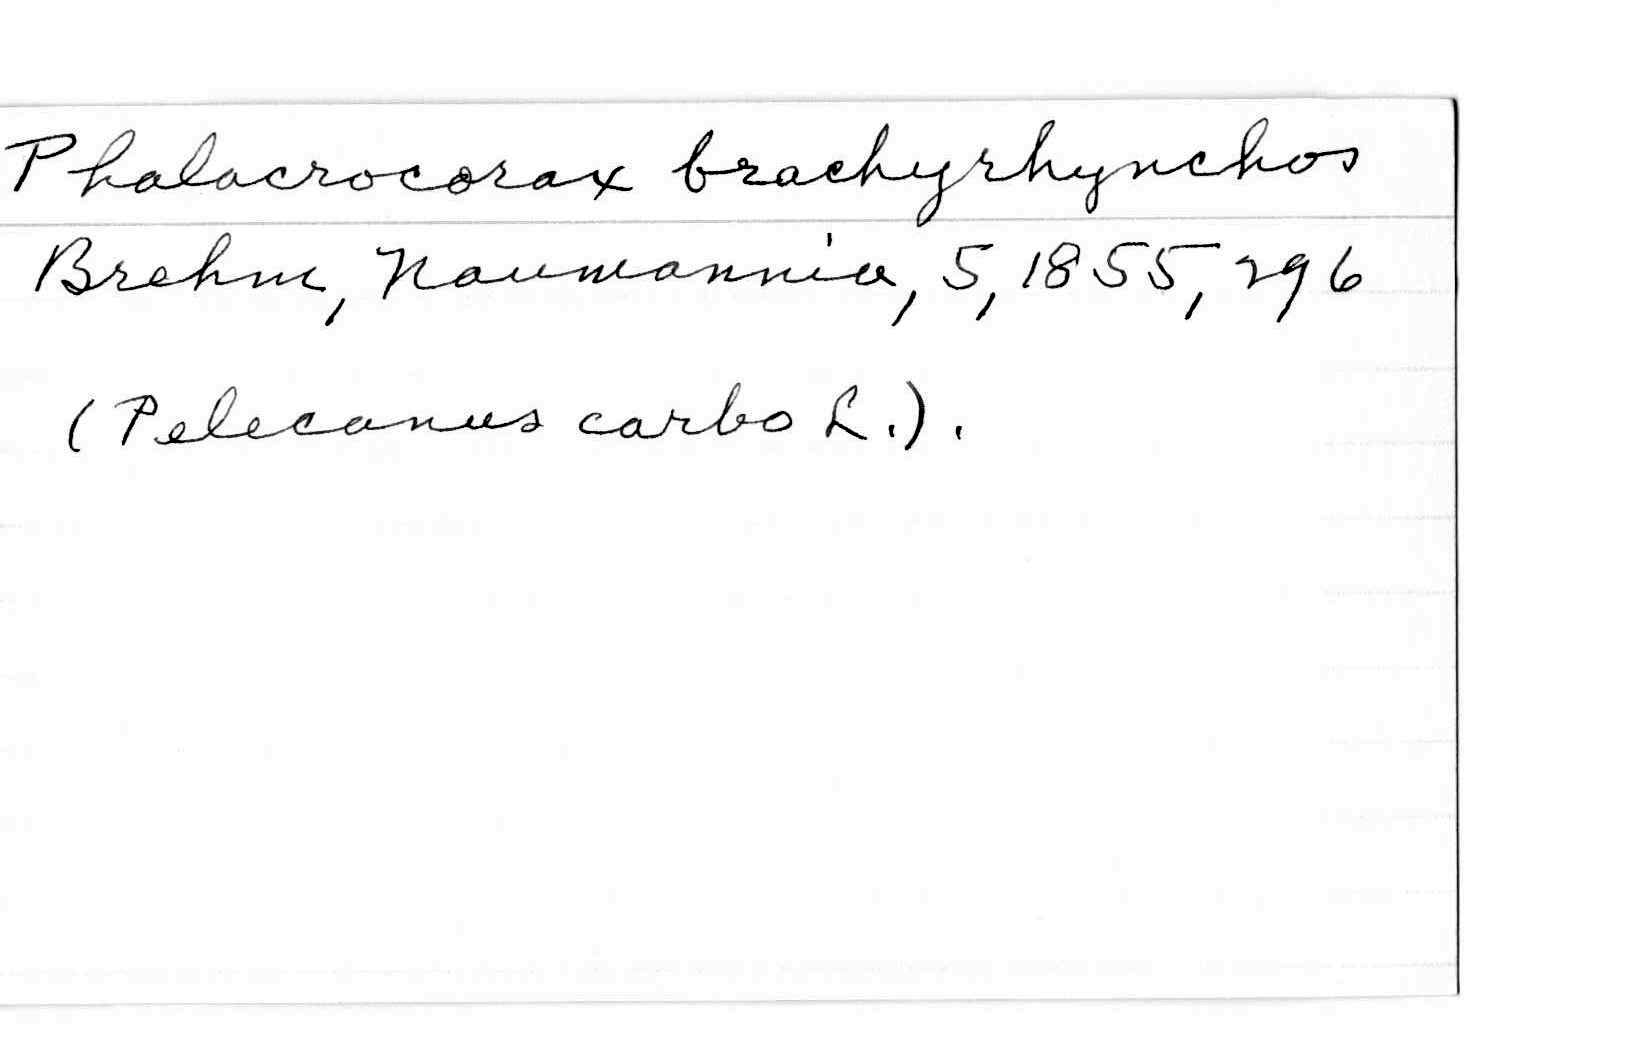 Phalacrocorax brachyrhynchos
Brehm, Naumannia, 5, 1855, 296
(Pelecanus carbo L.).